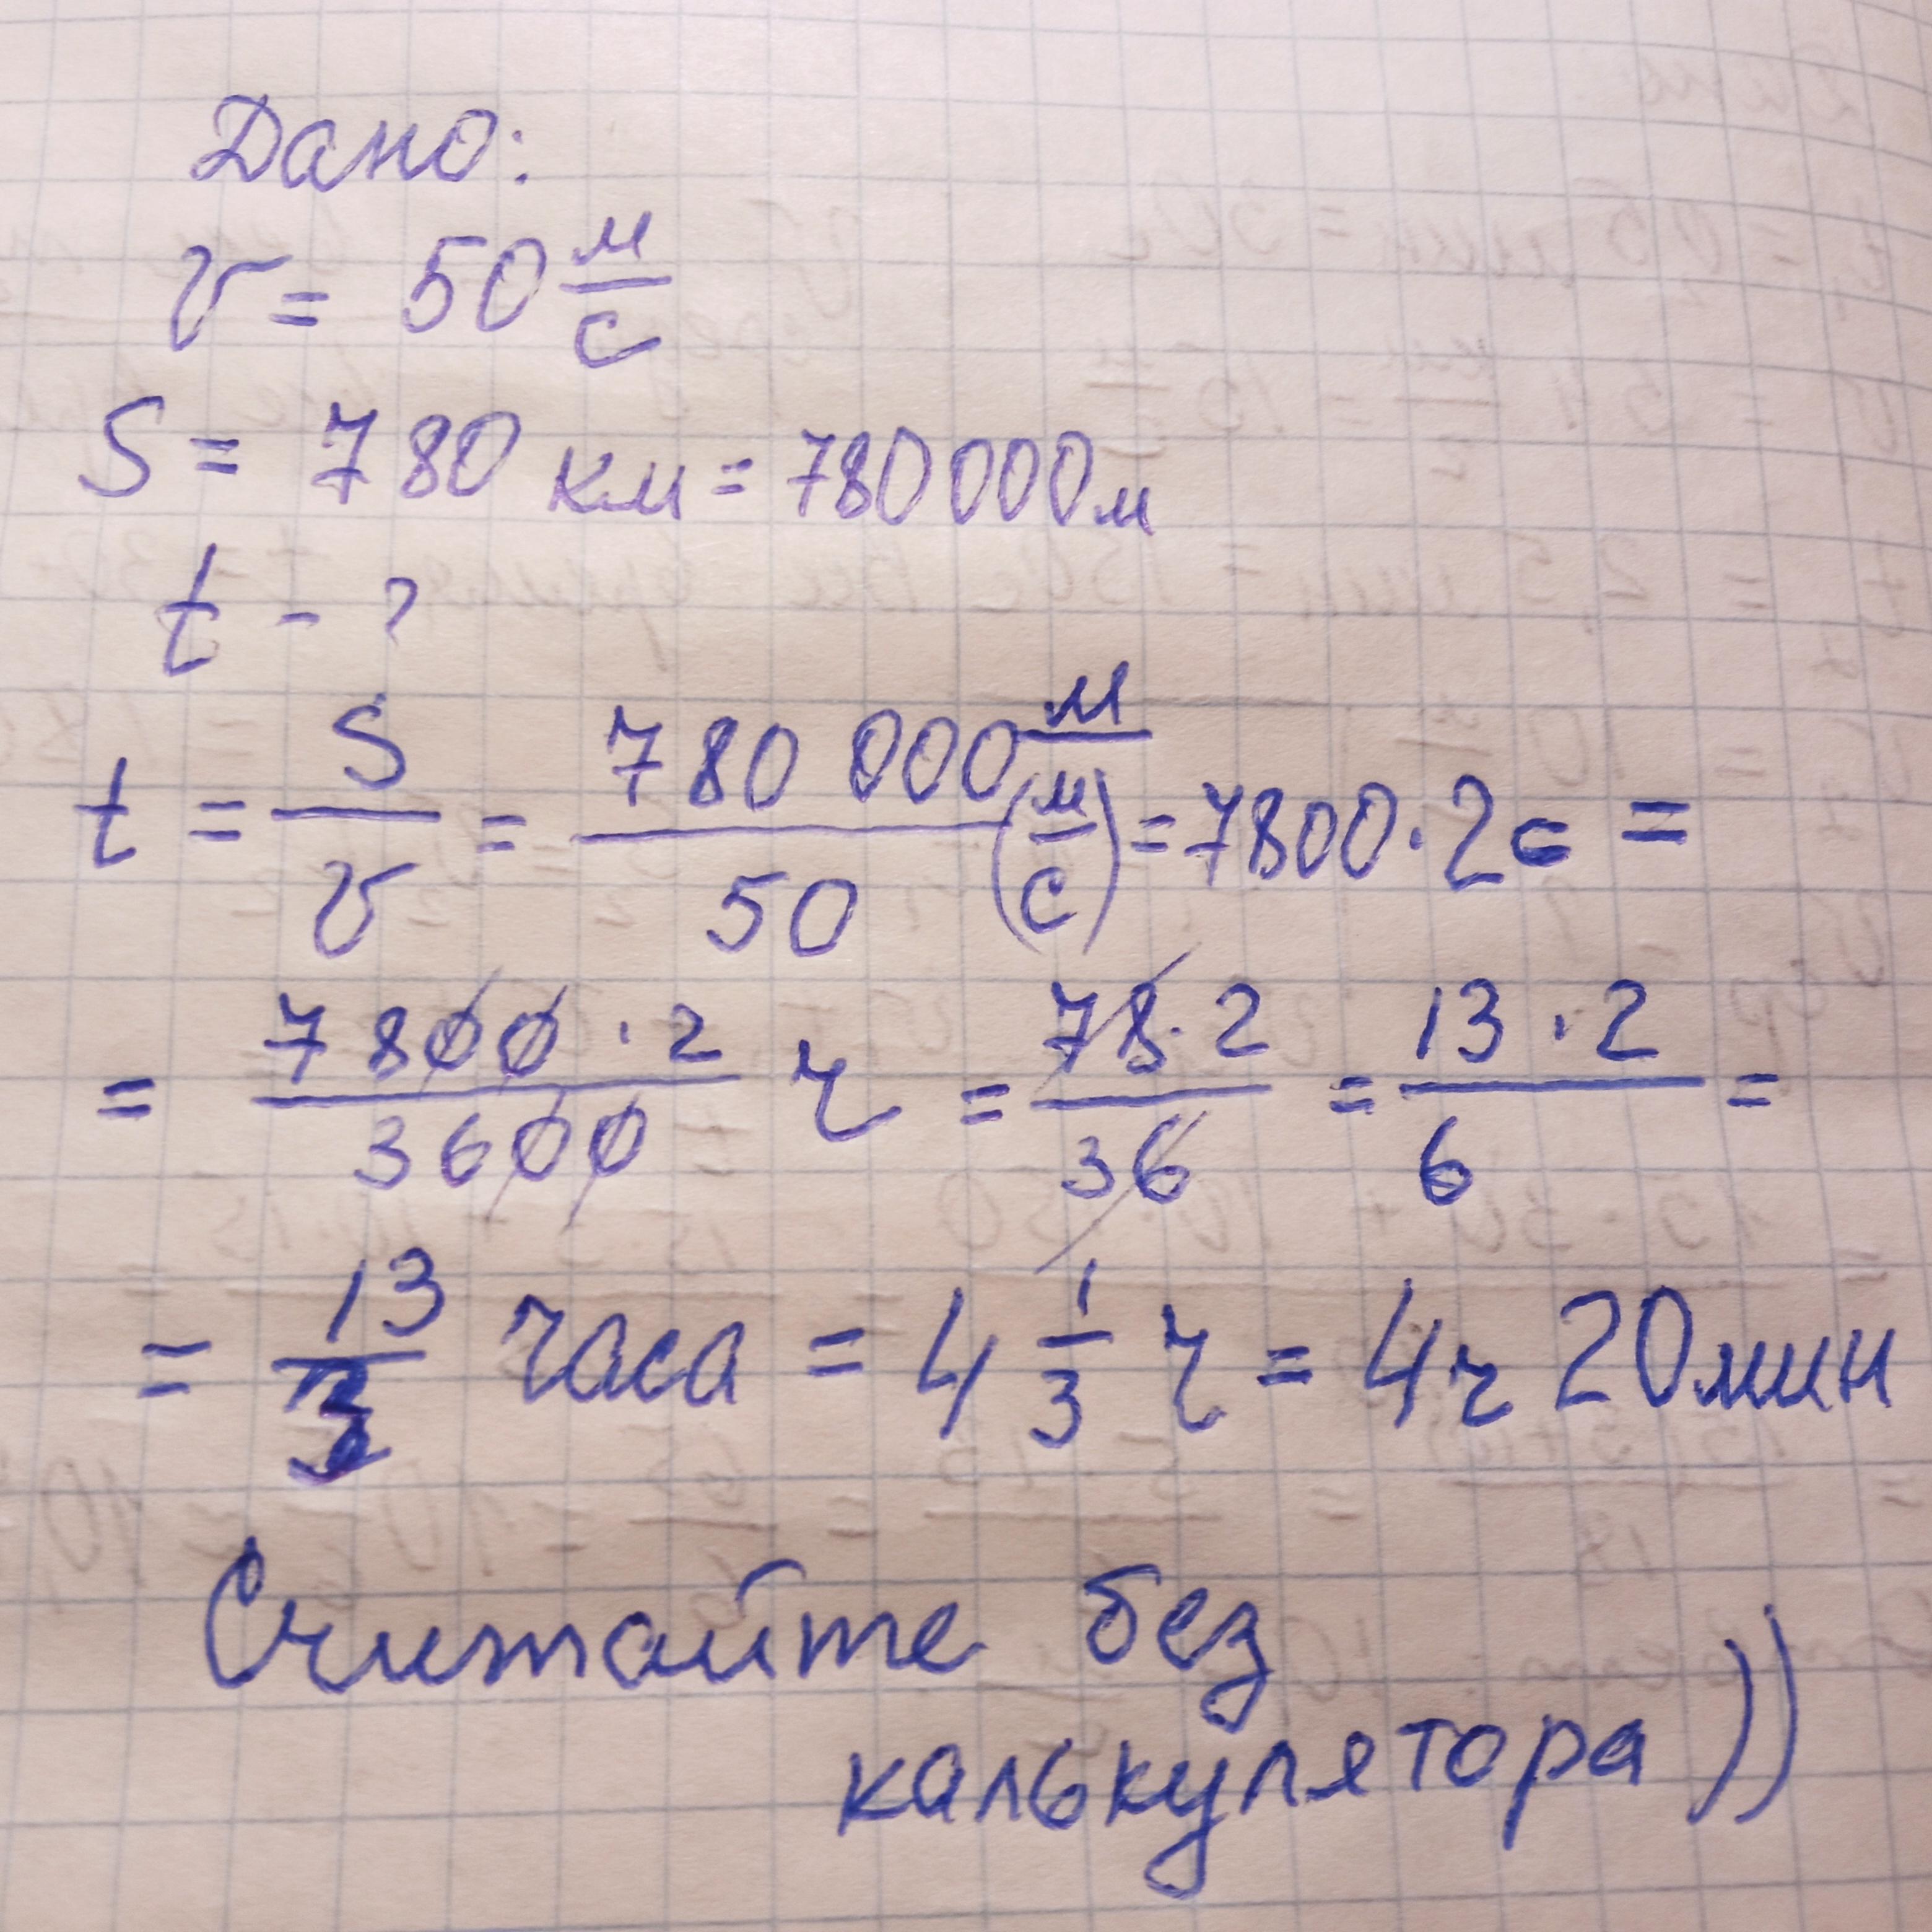 Дано:
v = 50 м/с
S = 780 км = 780000м
t - ?
t = S/v = 780 000 м/50 (м/с) = 7800·2с =
= 7800·2/3600 ч = 78·2/36 = 13·2/6 =
= 13/3 часа = 4 1/3 ч = 4ч 20мин
Считайте без
калькулятора))